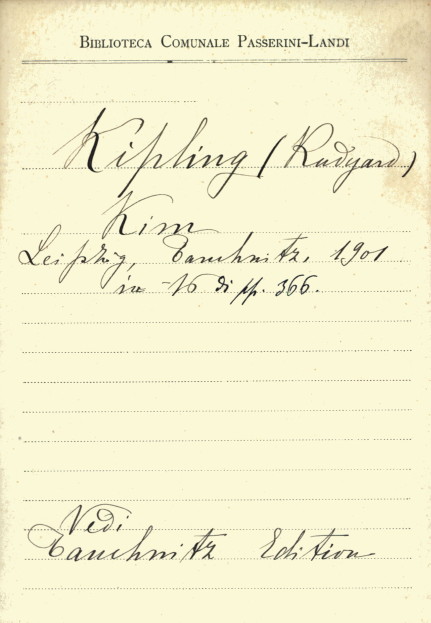 BIBLIOTECA COMUNALE PASSERINI-LANDI
Kipling (Rudyard)
Kim
Leipzig, Tauchnitz, 1901
in-16 di pp. 366.
Vedi
Tauchnitz Edition